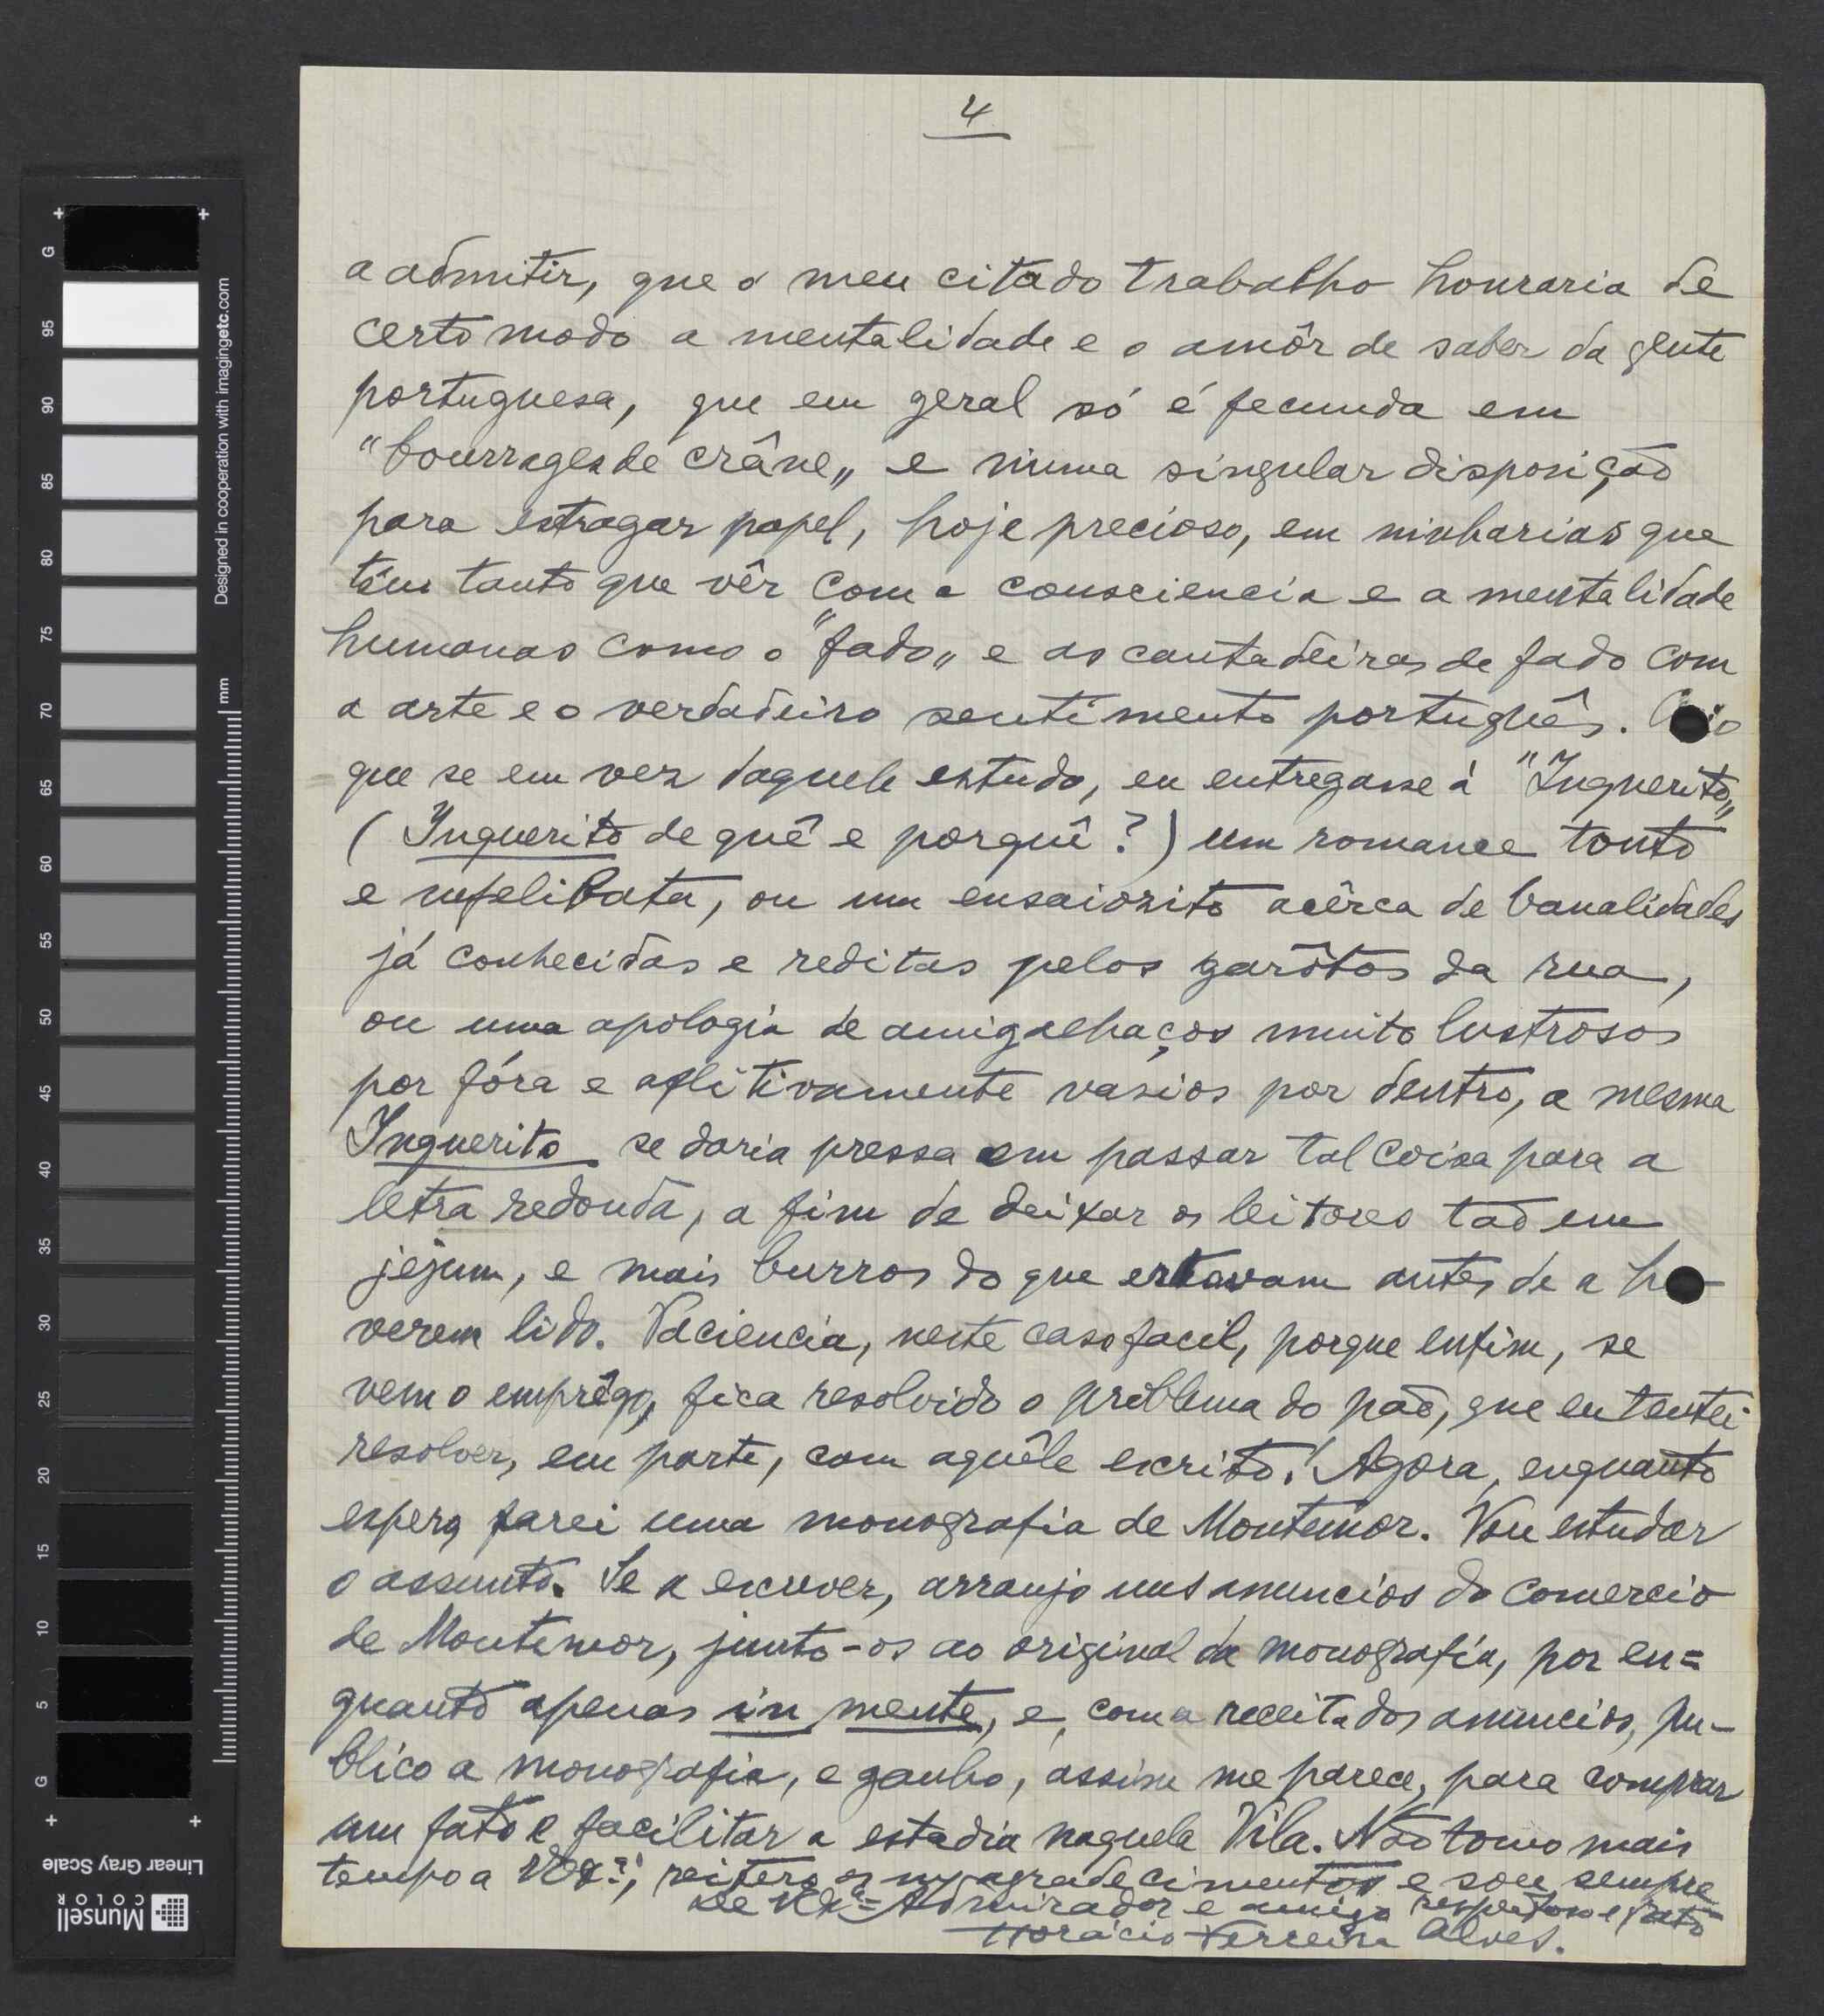 4
a admitir, que o meu citado trabalho honraria de
certo modo a mentalidade e o amôr de saber da gente
portuguesa, que em geral só é fecunda em
"bourrages de crâne„ e numa singular disposição
para estragar papel, hoje precioso, em ninharias que
têm tanto que vêr com a consciencia e a mentalidade
humanas como o "fado„ e as cantadeiras de fado com
a arte e o verdadeiro sentimento português.
que se em vez daquele estudo, eu entregasse á "Inquerito„
(Inquerito de quê e porquê?) um romance tonto
e nefelibata, ou um ensaiozito acêrca de banalidades
já conhecidas e reditas pelos garôtos da rua,
ou uma apologia de amigalhaços muito lustrosos
por fóra e aflitivamente vasios por dentro, a mesma
Inquerito se daria pressa em passar tal coisa para a
letra redonda, a fim de deixar os leitores tão em
jejum, e mais burros do que estavam antes de a h
verem lido. Paciencia, neste caso facil, porque enfim, se
vem o emprêgo, fica resolvido o problema do pão, que eu tentei
resolver, em parte, com aquêle escrito! Agora, enquanto
espero, farei uma monografia de Montemor. Vou estudar
o assunto. Se a escrever, arranjo uns anuncios do comercio
de Montemor, junto-os ao original da monografia, por en=
quanto apenas in mente, e, com a receita dos anuncios, pu-
blico a monografia, e ganho, assim me parece, para comprar
um fato e facilitar a estadia naquela Vila. Não tomo mais
tempo a V. Ex.ª; reitero os agradecimentos e sou sempre
de V. Ex.ª Admirador e amigo respeitoso e grato
Horácio Ferreira Alves.
Designed in cooperation with imagingetc.com
mm
G
95
90
85
80
75
70
65
60
55
50
45
40
35
30
25
20
15
10
5
G
Linear Gray Scale
Munsell
COLOR